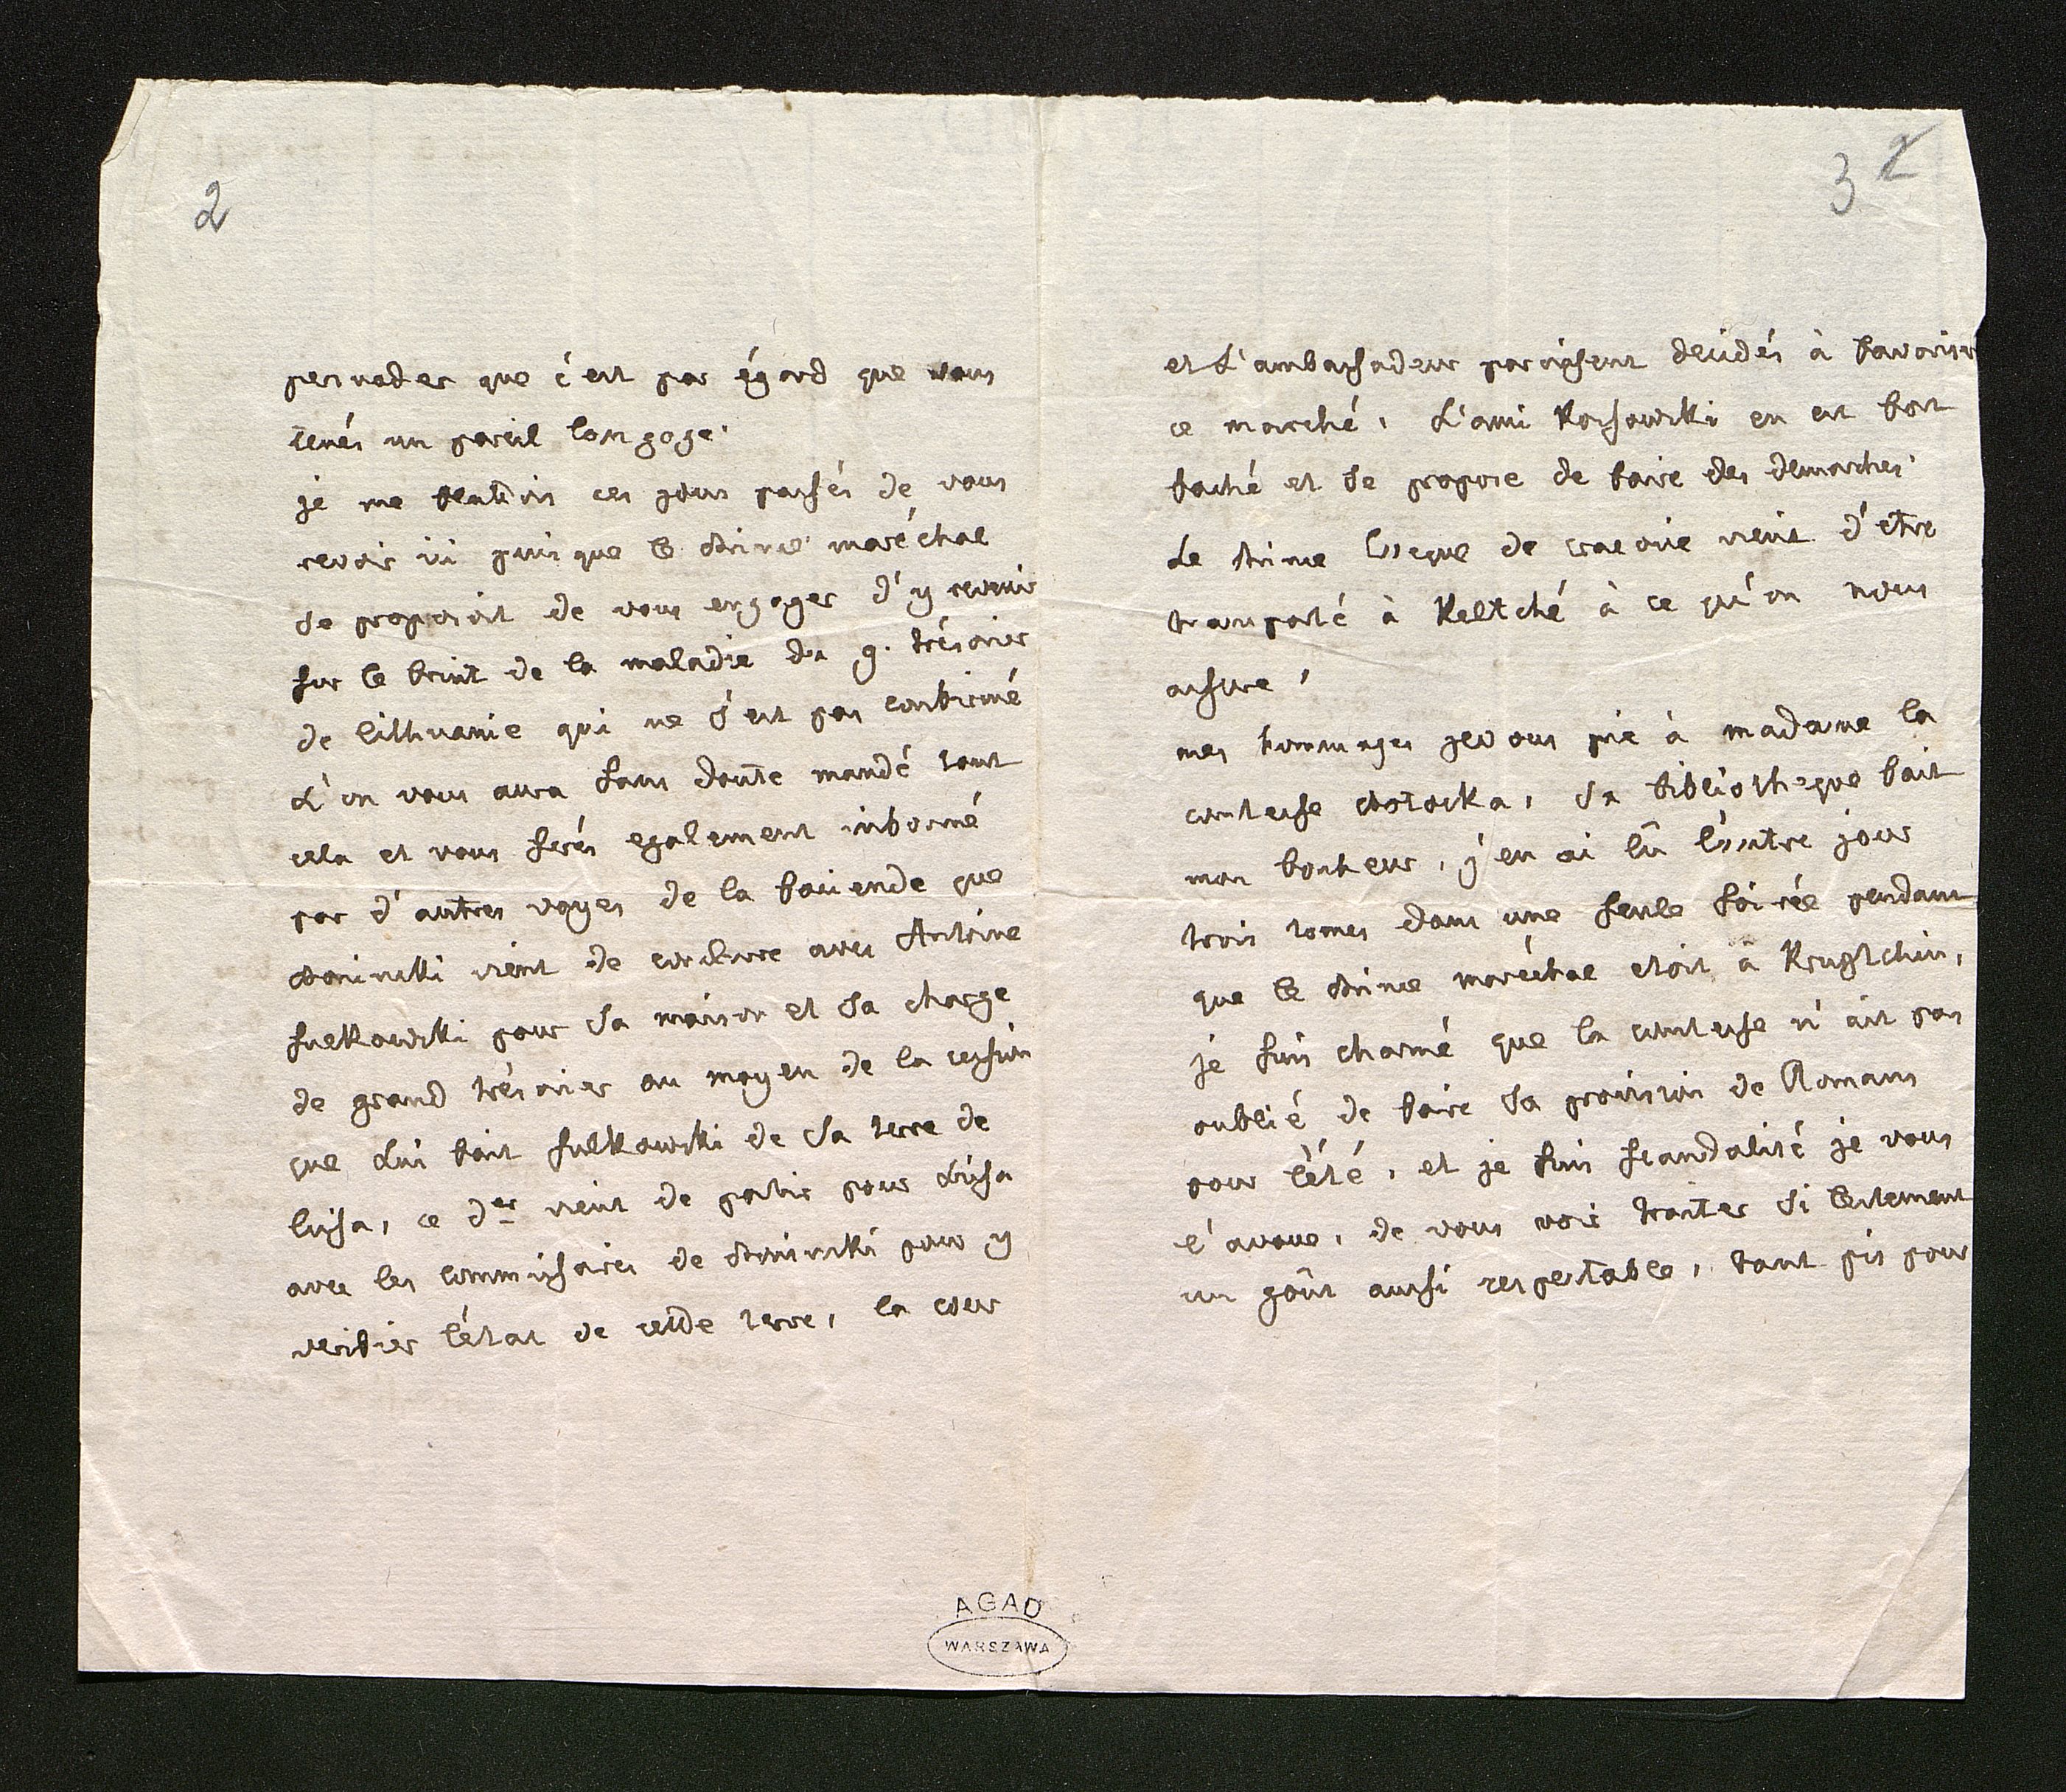 2
persuader que c'est par égard que vous
tenés un pareil langage.
je me flattois ces jours passés de vous
revoir ici puisque le Prince maréchal
se proposoit de vous engager d'y revenir
sur le bruit de la maladie du g. trésorier
de lithuanie qui ne s'est pas confirmé
L'on vous aura sans doute mandé tout
cela et vous serés egalement informé
par d'autres voyes de la faciende que
Poninski vient de conclure avec Antoine
sulkowski pour sa maison et sa charge
de grand trésorier au moyen de la cession
que Lui fait sulkowski de sa terre de
lissa, ce d.er vient de partir pour Lissa
avec les commissaires de Poninski pour y
verifier l'état de cette terre, la cour
3 2
et L'ambassadeur paroissent decidés à favoriser
ce marché, L'ami Kossowski en est fort
faché et se propose de faire des demarches.
Le Prince Eveque de cracovie vient d'etre
transporté à Keltché à ce qu'on nous
assure,
mes hommages je vous prie à madame la
comtesse Potocka, sa bibliotheque fait
mon bonheur, j'en ai lû l'autre jour
trois tomes dans une seule soirée pendant
que le Prince maréchal etoit à Kruglchin,
je suis charmé que la comtesse n'ait pas
oublié de faire sa provision de Romans
pour l'été, et je suis scandalisé je vous
l'avoue, de vous voir traiter si lestement
un goût aussi respectable, tant pis pour
AGAD
WARSZAWA